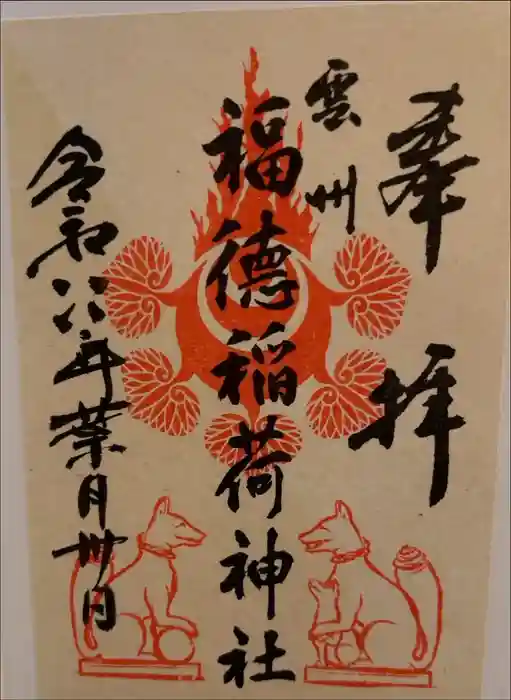 奉拝
雲州
福德稲荷神社
令和六年葉月卅日